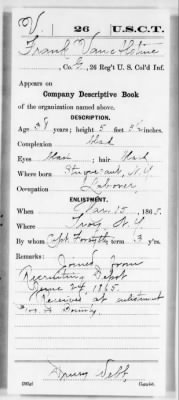 V. | 26 | U.S.C.T.
Frank Van Stine
, Co. G, 26 Reg't U. S. Col'd Inf.
Appears on
Company Descriptive Book
of the organization named above.
DESCRIPTION.
Age 38 years; height 5 feet 5½ inches.
Complexion black
Eyes black; hair black
Where born N.Y.
Occupation Laborer
ENLISTMENT.
When Mar. 15, 1865.
Where Troy N.Y.
By whom Capt. Forsyth; term 3 y'rs.
Remarks: Joined from
Recruiting Depot
June 24, 1865.
Received at enlistment
Bounty.
Copyist.